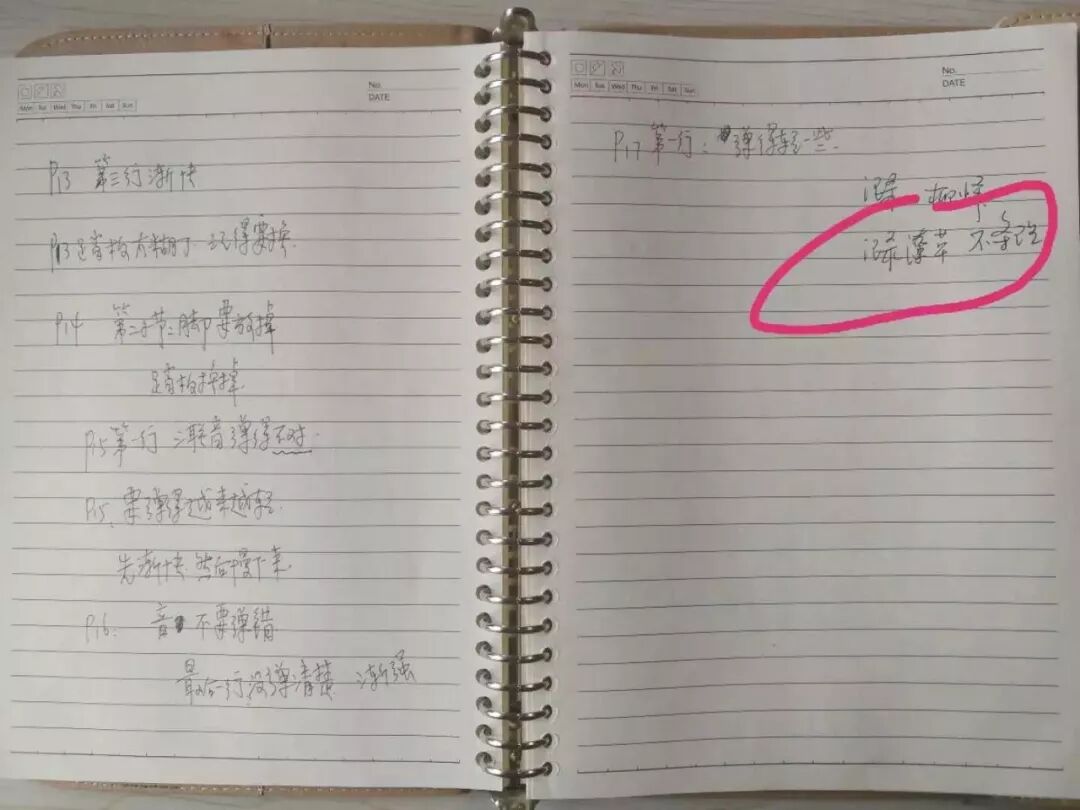 Mon Tue Wed Thu Fri Sat Sun
No.
DATE
P13 第三行渐快
P13 踏板太糊了 记得要换
P14 第二小节:脚要放掉
踏板换掉
P15 第一行 三联音弹得不对.
P15. 要弹得越来越轻.
先渐快.然后慢下来.
P16: 音 不要弹错
最后一行没弹清楚 渐强
Mon Tue Wed Thu Fri Sat Sun
No.
DATE
P17 第一行: 弹得轻一些.
不条理